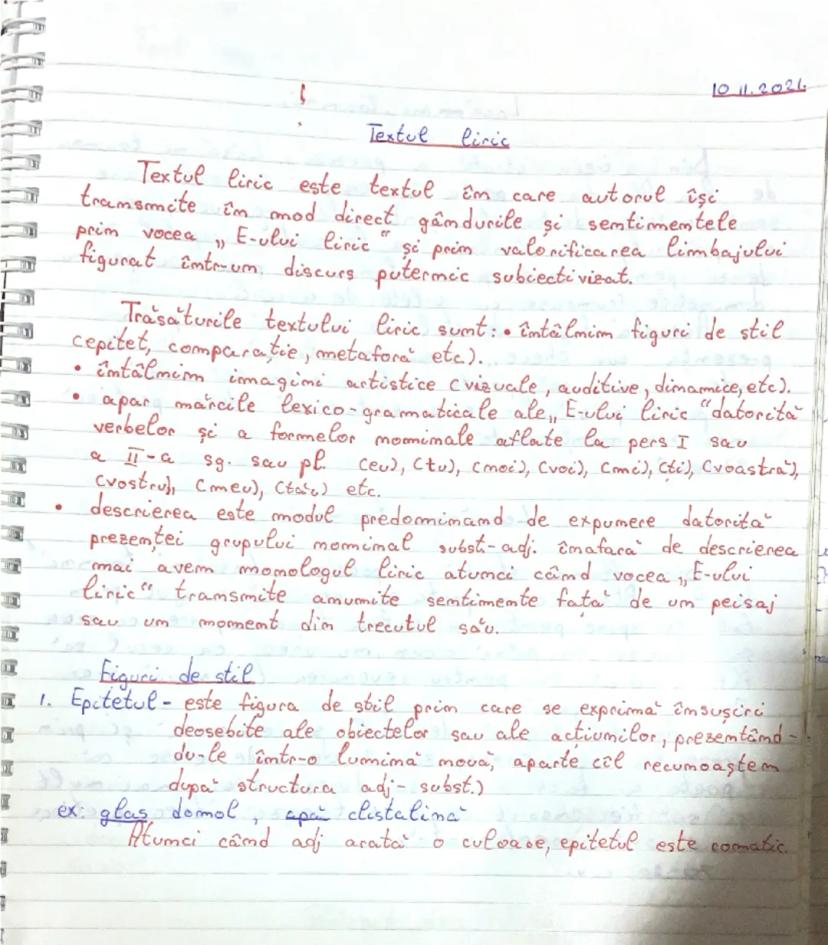 10.11.2021.
Textul liric
Textul liric este textul în care autorul își
transmite în mod direct gândurile și sentimentele
prin vocea „E-ului liric" și prin valorificarea limbajului
figurat într-un discurs puternic subiectivizat.
Trăsăturile textului liric sunt: • întâlnim figuri de stil
(epitet, comparație, metaforă etc).
• întâlnim imagini artistice (vizuale, auditive, dinamice, etc).
• apar mărcile lexico-gramaticale ale „E-ului liric "datorită
verbelor și a formelor nominale aflate la pers I sau
a II-a sg. sau pl. (eu), (tu), (noi), (voi), (mi), (ți), (voastră),
(vostru), (meu), (tău) etc.
• descrierea este modul predominand de expunere datorită
prezenței grupului nominal subst-adj. înafară de descrierea
mai avem monologul liric atunci când vocea „E-ului
liric" transmite anumite sentimente față de un peisaj
sau un moment din trecutul său.
Figuri de stil
1. Epitetul - este figura de stil prin care se exprimă însușiri
deosebite ale obiectelor sau ale acțiunilor, prezentând-
du-le într-o lumină nouă, aparte (îl recunoaștem
după structura adj-subst.)
ex: glas domol, apă clistalină
Atunci când adj arată o culoare, epitetul este comatic.